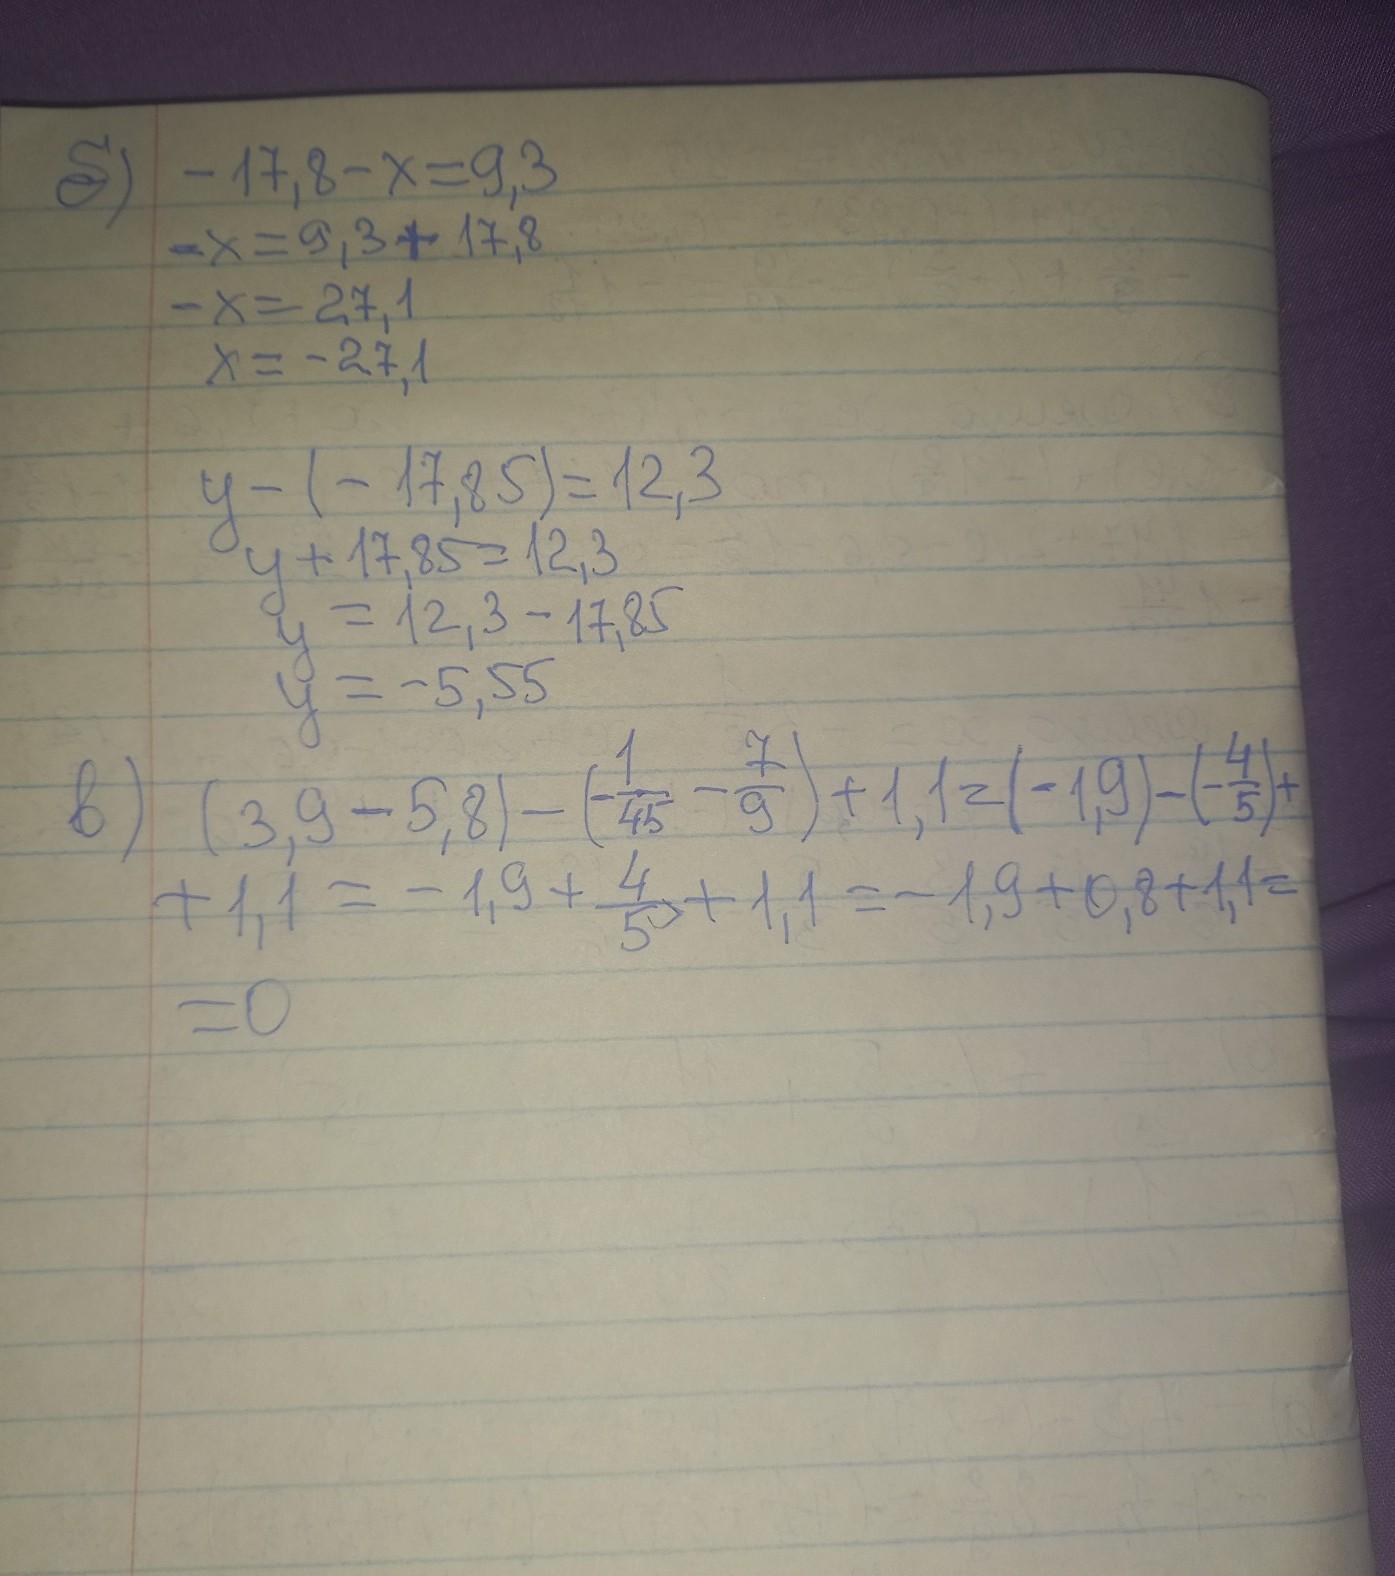 б) -17,8-x=9,3
-x=9,3+17,8
-x=27,1
x=-27,1
y-(-17,85)=12,3
y+17,85=12,3
y=12,3-17,85
y=-5,55
в) (3,9-5,8)-(-1/45-7/9)+1,1=(-1,9)-(-4/5)+
+1,1=-1,9+4/5+1,1=-1,9+0,8+1,1=
=0